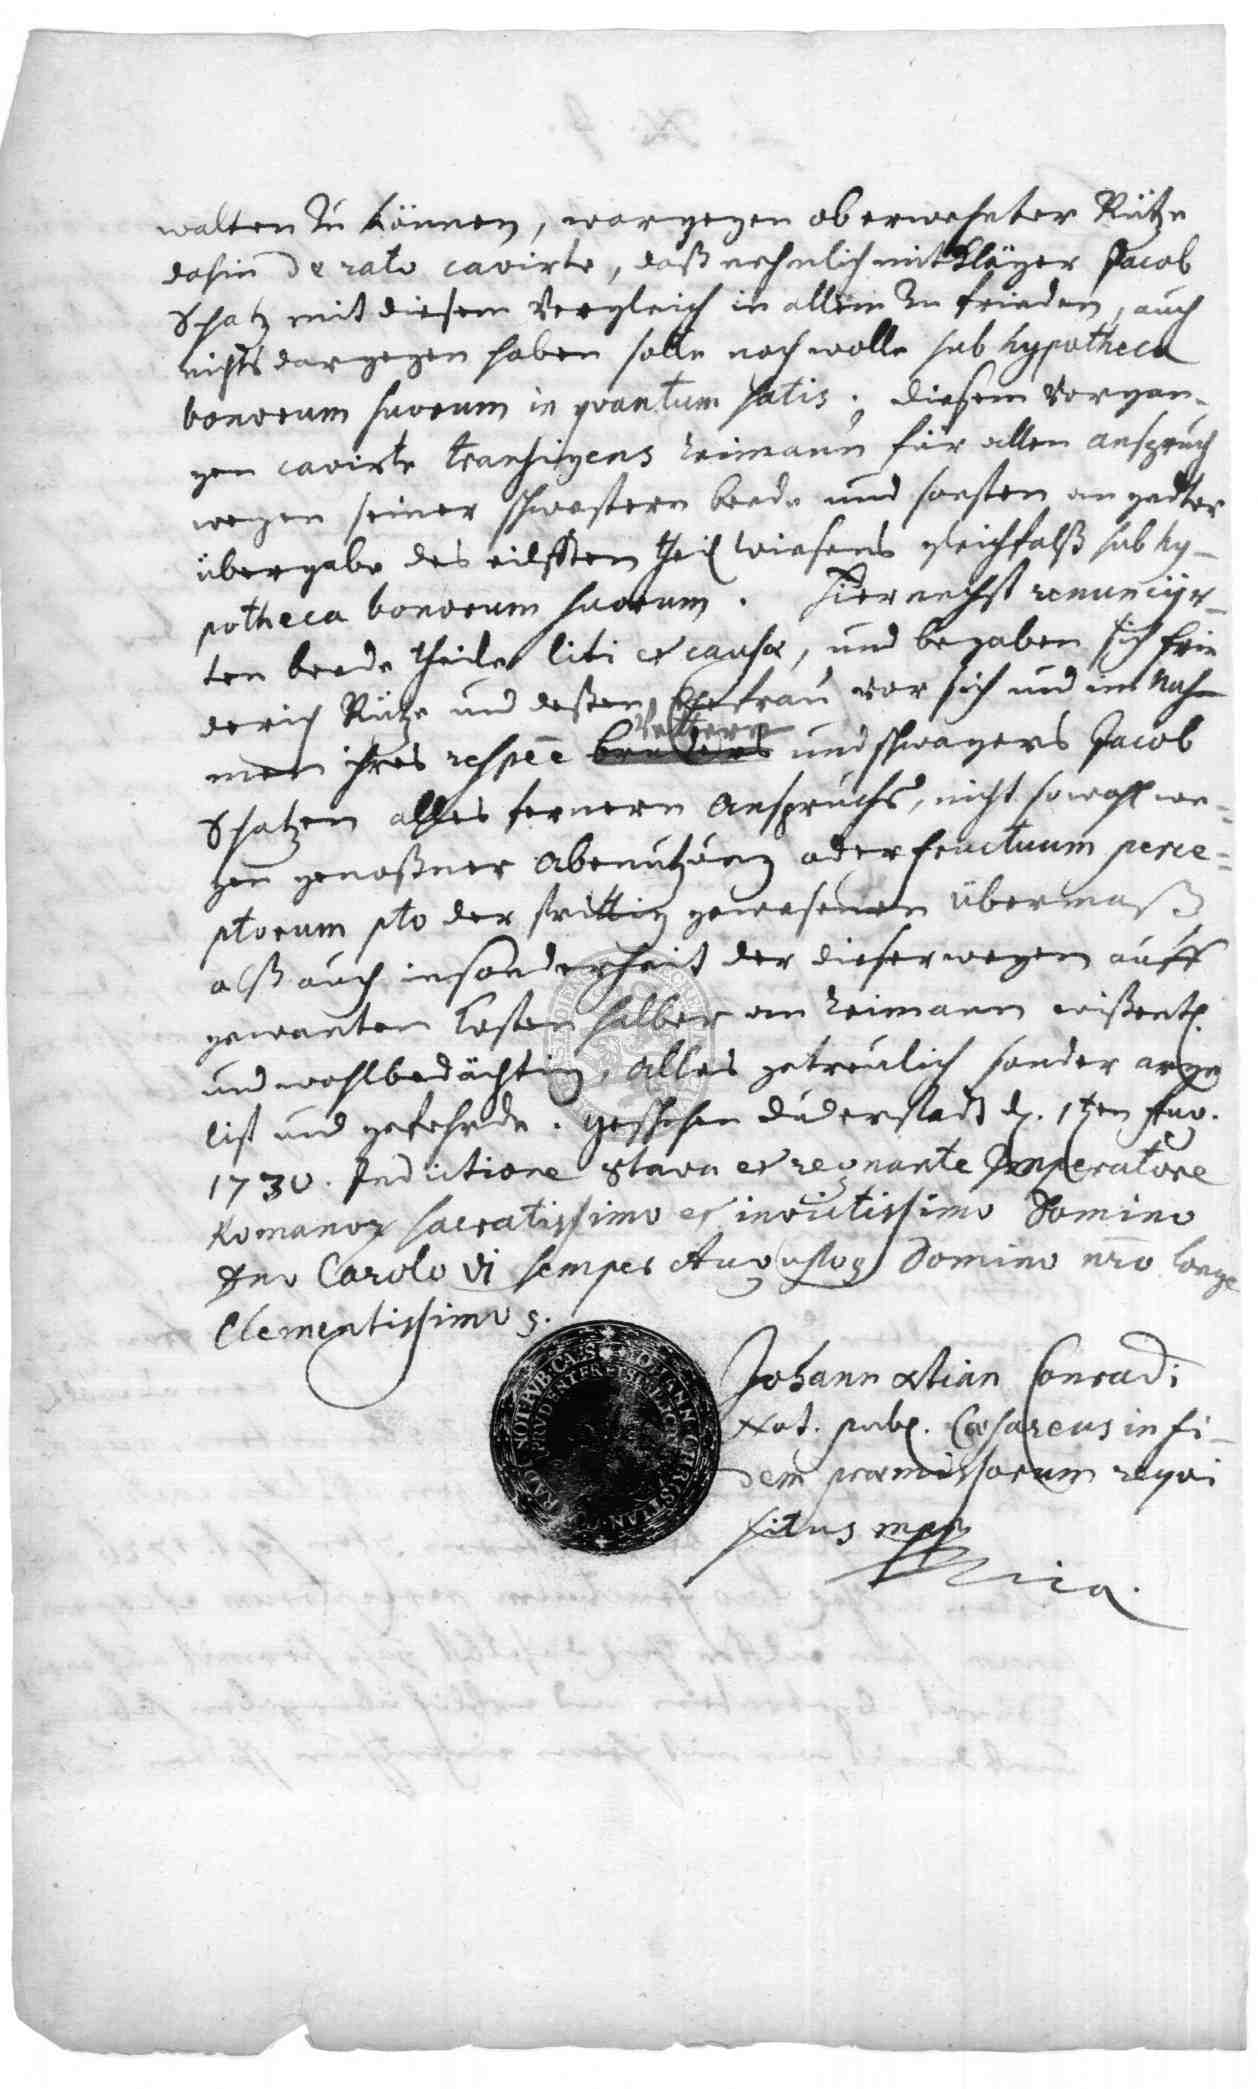 walten zu können, wargegen oberwehnter Rütze
dahin de rato cavirte, daß nehmlich mitKläger Jacob
Schatz mit diesem Vergleich in allem zu frieden, auch
nichts dargegen haben solle noch wolle sub hypotheca
bonorum suorum in quantum satis. diesem vorgan-
gen cavirte transigens Leimann für allen anspruch
wegen seiner schwestern beede und sonsten an gedter
übergabe des eilfften theil wiesens gleichfalß sub hy-
potheca bonorum suorum. hiernechst renuncijr-
ten beede theile liti et causæ, und begaben sich frie
derich Rütze und deßen Ehefrau vor sich und im Nah-
men ihres respēē Vettern und schwagers Jacob
Schatzen alles fernern anspruchs, nicht sowohl we-
gen genoßner Abenutzung oder fructuum perce-
ptorum pto der strittig gewesenen Übermaß
alß auch insonderheit der dieserwegen auff
gewanten kosten halber an Leimann wißentl.
und wohlbedächtig, alles getreulich sonder arge
list und gefehrde. geschehen Duderstadt d. 1ten
1730. Indictione 8tava et regnante Imperatore
Romano sacratissimo et invictissimo Domino
Dno Carolo VI semper Augusto Domino nro longe
Clementissimo.
Johann Xtian Conradi
Not. publ. Cæsareus in fi-
dem præmissorum requi
situs mpp
ria.
NOT.PUB.CÆS. IOHANN CHRISTIAN
PRUDENTER